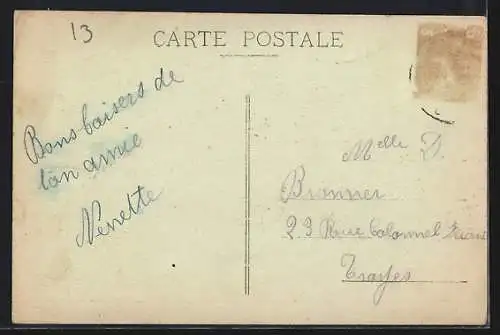 13
CARTE POSTALE
Bons baisers de
ton amie
Nenette
Melle D.
Bronner
23 Rue Colonnel
Troyes